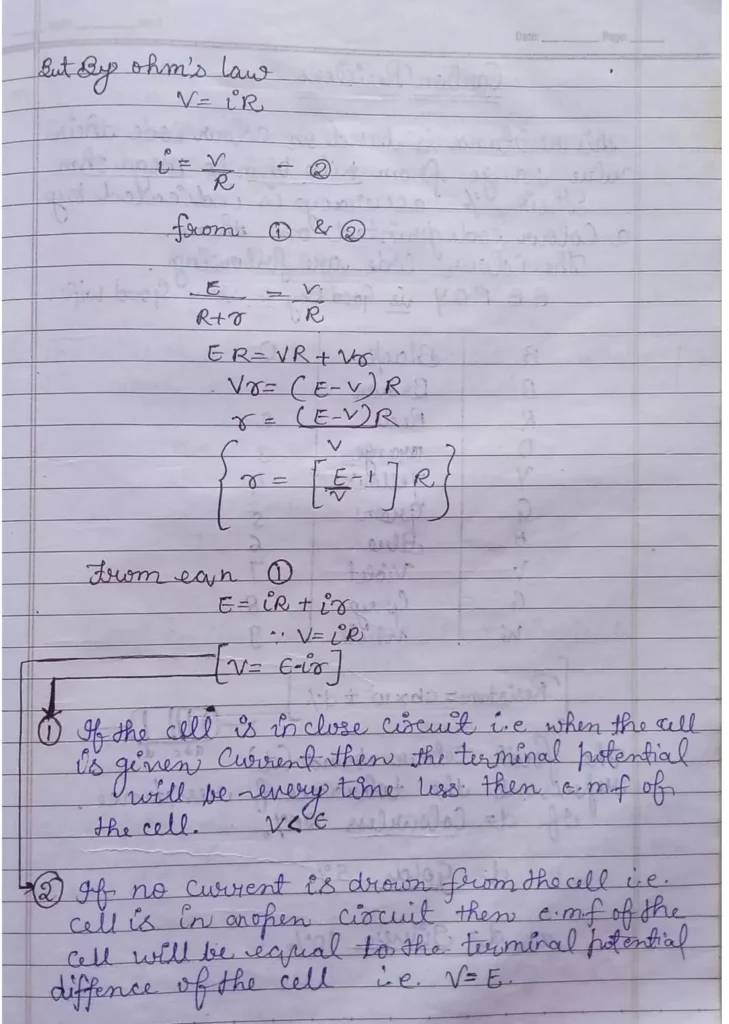 Date: Page:
But By ohm's law
V = iR
i = V/R - ②
from ① & ②
E/R+r = V/R
ER = VR + Vr
Vr = (E-V)R
r = (E-V)R/V
{ r = [E/V - 1] R }
From eqn ①
E = iR + ir
∵ V = iR
[V = E-ir]
① If the cell is in close circuit i.e when the cell
is given current then the terminal potential
will be every time less then e.m.f of
the cell. V<E
② If no current is drown from the cell i.e.
cell is in anopen circuit then e.m.f of the
cell will be equal to the terminal potential
diffence of the cell i.e. V=E.